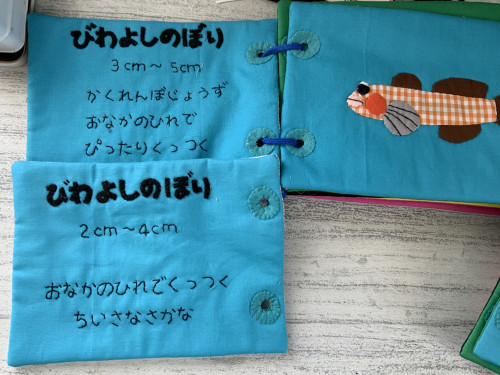 びわよしのぼり
3cm～5cm
かくれんぼじょうず
おなかのひれで
ぴったりくっつく
びわよしのぼり
2cm～4cm
おなかのひれでくっつく
ちいさなさかな